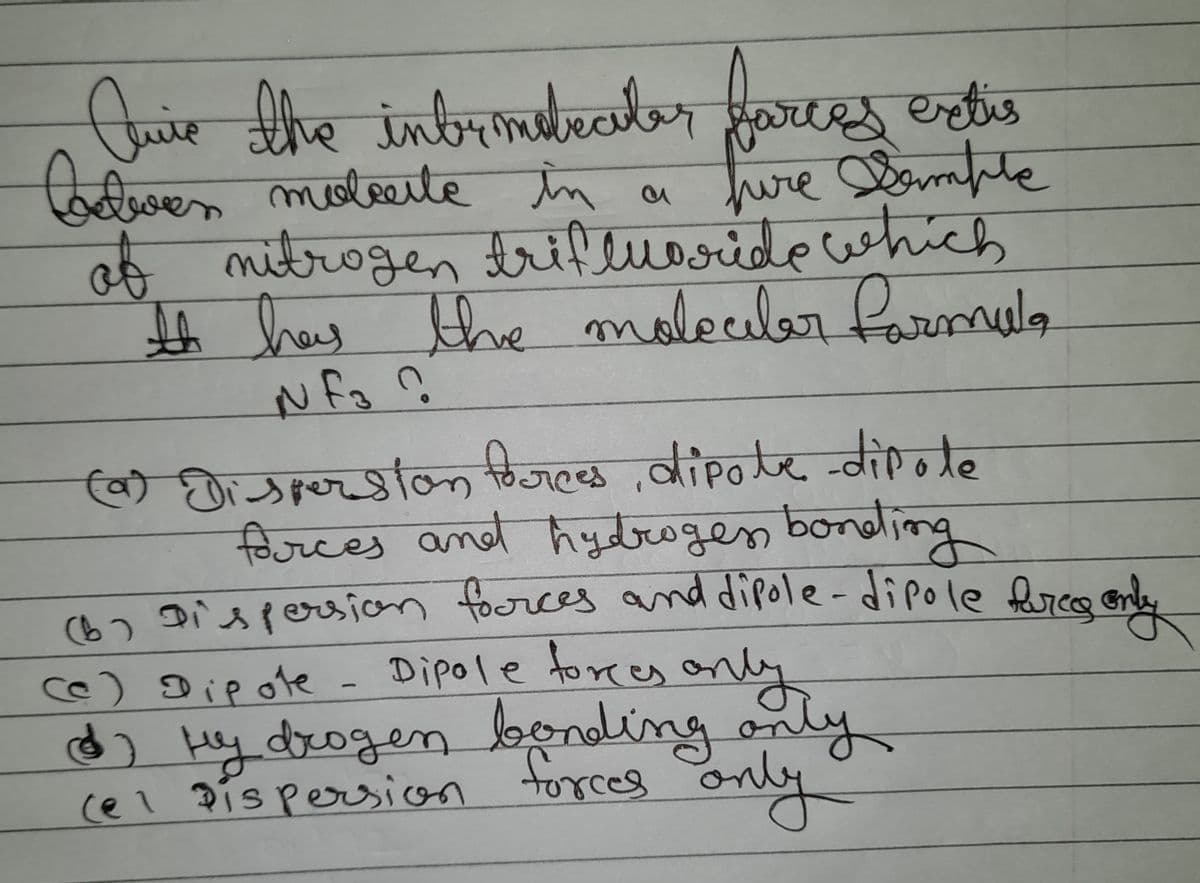 Give the intermolecular forces exetis
between moleecule in a pure Sample
of nitrogen trifluoride which
has the molecular formula
NF3 ?
(a) Dispersion forces, dipole-dipole
forces and hydrogen bonding
(b) Dispersion forces and dipole-dipole forces only
(c) Dipole - Dipole forces only
(d) Hydrogen bonding only
(e) Dispersion forces only